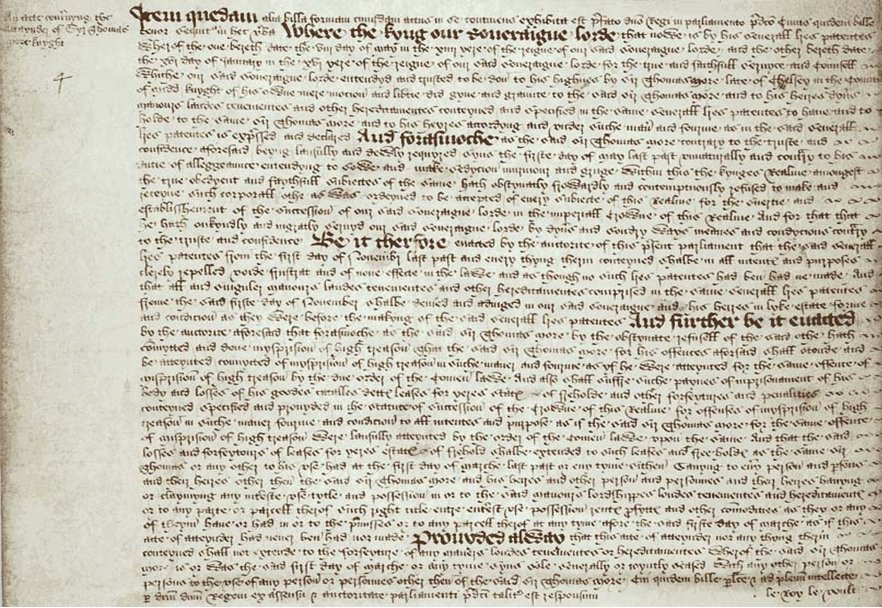 An acte concernyng the
attaynder of Syr Thomas
More knyght
Item quedam alia billa formam cuiusdam actus in se continens exhibita est prefato dno Regi in parliamento predco Cuius quidem bille
tenor sequit in hec verba Where the kyng our soveraigne lorde that nowe is by his severall lres patentes
Wherof the one bereth date the day of may in the yere of the reigne of our said soveraigne lorde and the other bereth date
the day of January in the yere of the reigne of our said soveraigne lorde for the true and faithfull service and Counsell
Whiche our said soveraigne lorde entended and trusted to be don to his highnes by Sir Thomas More late of Chelsey in the Countie
of knyght of his owne mere mocion and did geve and graunte to the said Sir Thomas More and to his heires dyvers
manours landes tenementes and other hereditamentes conteyned and specified in the same severall lres patentes to have and to
holde to the same Sir Thomas More and to his heyres accordyng and under suche maner and fourme as in the said severall
lres patentes is expressed and declared And forasmoche as the said Sir Thomas More contrary to the truste and
confidence aforesaid beyng laufully and duely required syns the firste day of may last past unnaturally and contrary to his
dutie of alleggeaunce entendyng to sowe and make sedycion murmour and gruge within this the kynges Realme amongest
the true obedyent and faythfull subiectes of the same hath obstynatly frowardly and contemptuously refused to make and
receyve such corporall othe as was ordeyned to be accepted of every subiecte of this Realme for the suertie and
establisshement of the succession of our said soveraigne lorde in the imperiall Crowne of this Realme And for that that
he hath unkyndly and ingratly servyd our said soveraigne lorde by dyvers and sondry wayes meanes and condycions contrary
to the truste and confidence Be it therfore enacted by the auctorite of this present parliament that the said severall
lres patentes from the first day of Novembr last past and every thyng therin conteyned shalbe in all intentes and purposes
clerely repelled voide frustrat and of none effecte in the lawe and as though no such lres patentes had ben had ne made And
that all and singuler manours landes tenementes and other hereditamentes comprised in the same severall lres patentes
frome the said firste day of November shalbe demed and adiuged in our said soveraigne and his heires in lyke estate forme
and condicion as they were before the makyng of the said severall lres patentes And further be it enacted
by the auctorite aforesaid that forasmoche as the said Sir Thomas More by the obstynate refusell of the said othe hath
comytted and done mysprision of high treason That the said Sir Thomas More for his offences aforsaid shall stonde and
be atteynted convycted of mysprision of high treason in suche maner and fourme as yf he were atteynted for the same offence of
mysprision of high treason by the due order of the comen lawe And also shall suffre suche paynes of imprisonament of his
body and losses of his goodes catalles dettes leases for yeres states of freholde and other forfeytures and penalities
conteyned specified and provyded in the statute of succession of the Crowne of this Realme for offenses of mysprision of high
treason in suche maner fourme and condicion to all intentes and purpose as if the said Sir Thomas More for the same offence
of mysprision of high treason were laufully atteynted by the order of the comen lawe upon the same And that the said
losses and forfeytours of leases for yeres estates of frehold shalbe extended to such leases and freholde as the same Sir
Thomas or any other to his use had at the first day of marche last part or eny tyme sithen Savyng to eny person and psons
and their heires other then the said Sir Thomas More and his heires and other person and personnes and their heires havyng
or claymyng any intereste use tytle and possession in or to the said manours lordshippes londes tenementes and hereditamentes
or to any parte or parcell therof such right title entre interest use possession rente proffytte and other comodities as they or any
of theym have or had in or to the premisses or to any parcell therof at any tyme afore the said firste day of marche as if this
acte of atteynder had never ben had nor made Provyded alway that this acte of atteynder nor any thyng therin
conteyned shall not extende to the forfeyture of any maners londes tenementes or hereditamentes Wherof the said Sir Thomas
More is or was the said first day of marche or any tyme syns sole severally or ioyntly seased with any other person or
persons to the use of any person or personnes other then of the said Sir Thomas More Cui quidem bille perlecte et ad plenum intellecte
per dictum dnum Regem ex assensu et auctoritate parliamenti predci taliter est responsum le Roy le vuelt